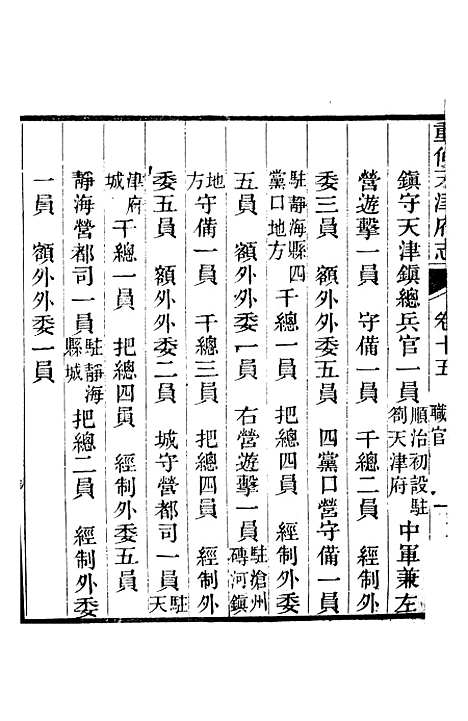 重修天津府志 卷十五 職官 一
鎮守天津鎮總兵官一員 順治初設駐劄天津府 中軍兼左
營遊擊一員 守備一員 千總二員 經制外
委三員 額外外委五員 四黨口營守備一員
駐靜海縣四黨口地方 千總一員 把總四員 經制外委
五員 額外外委一員 右營遊擊一員 駐滄州磚河鎮
地方 守備一員 千總三員 把總四員 經制外
委五員 額外外委二員 城守營都司一員 駐天
津府城 千總一員 把總四員 經制外委五員
靜海營都司一員 駐靜海縣城 把總二員 經制外委
一員 額外外委一員